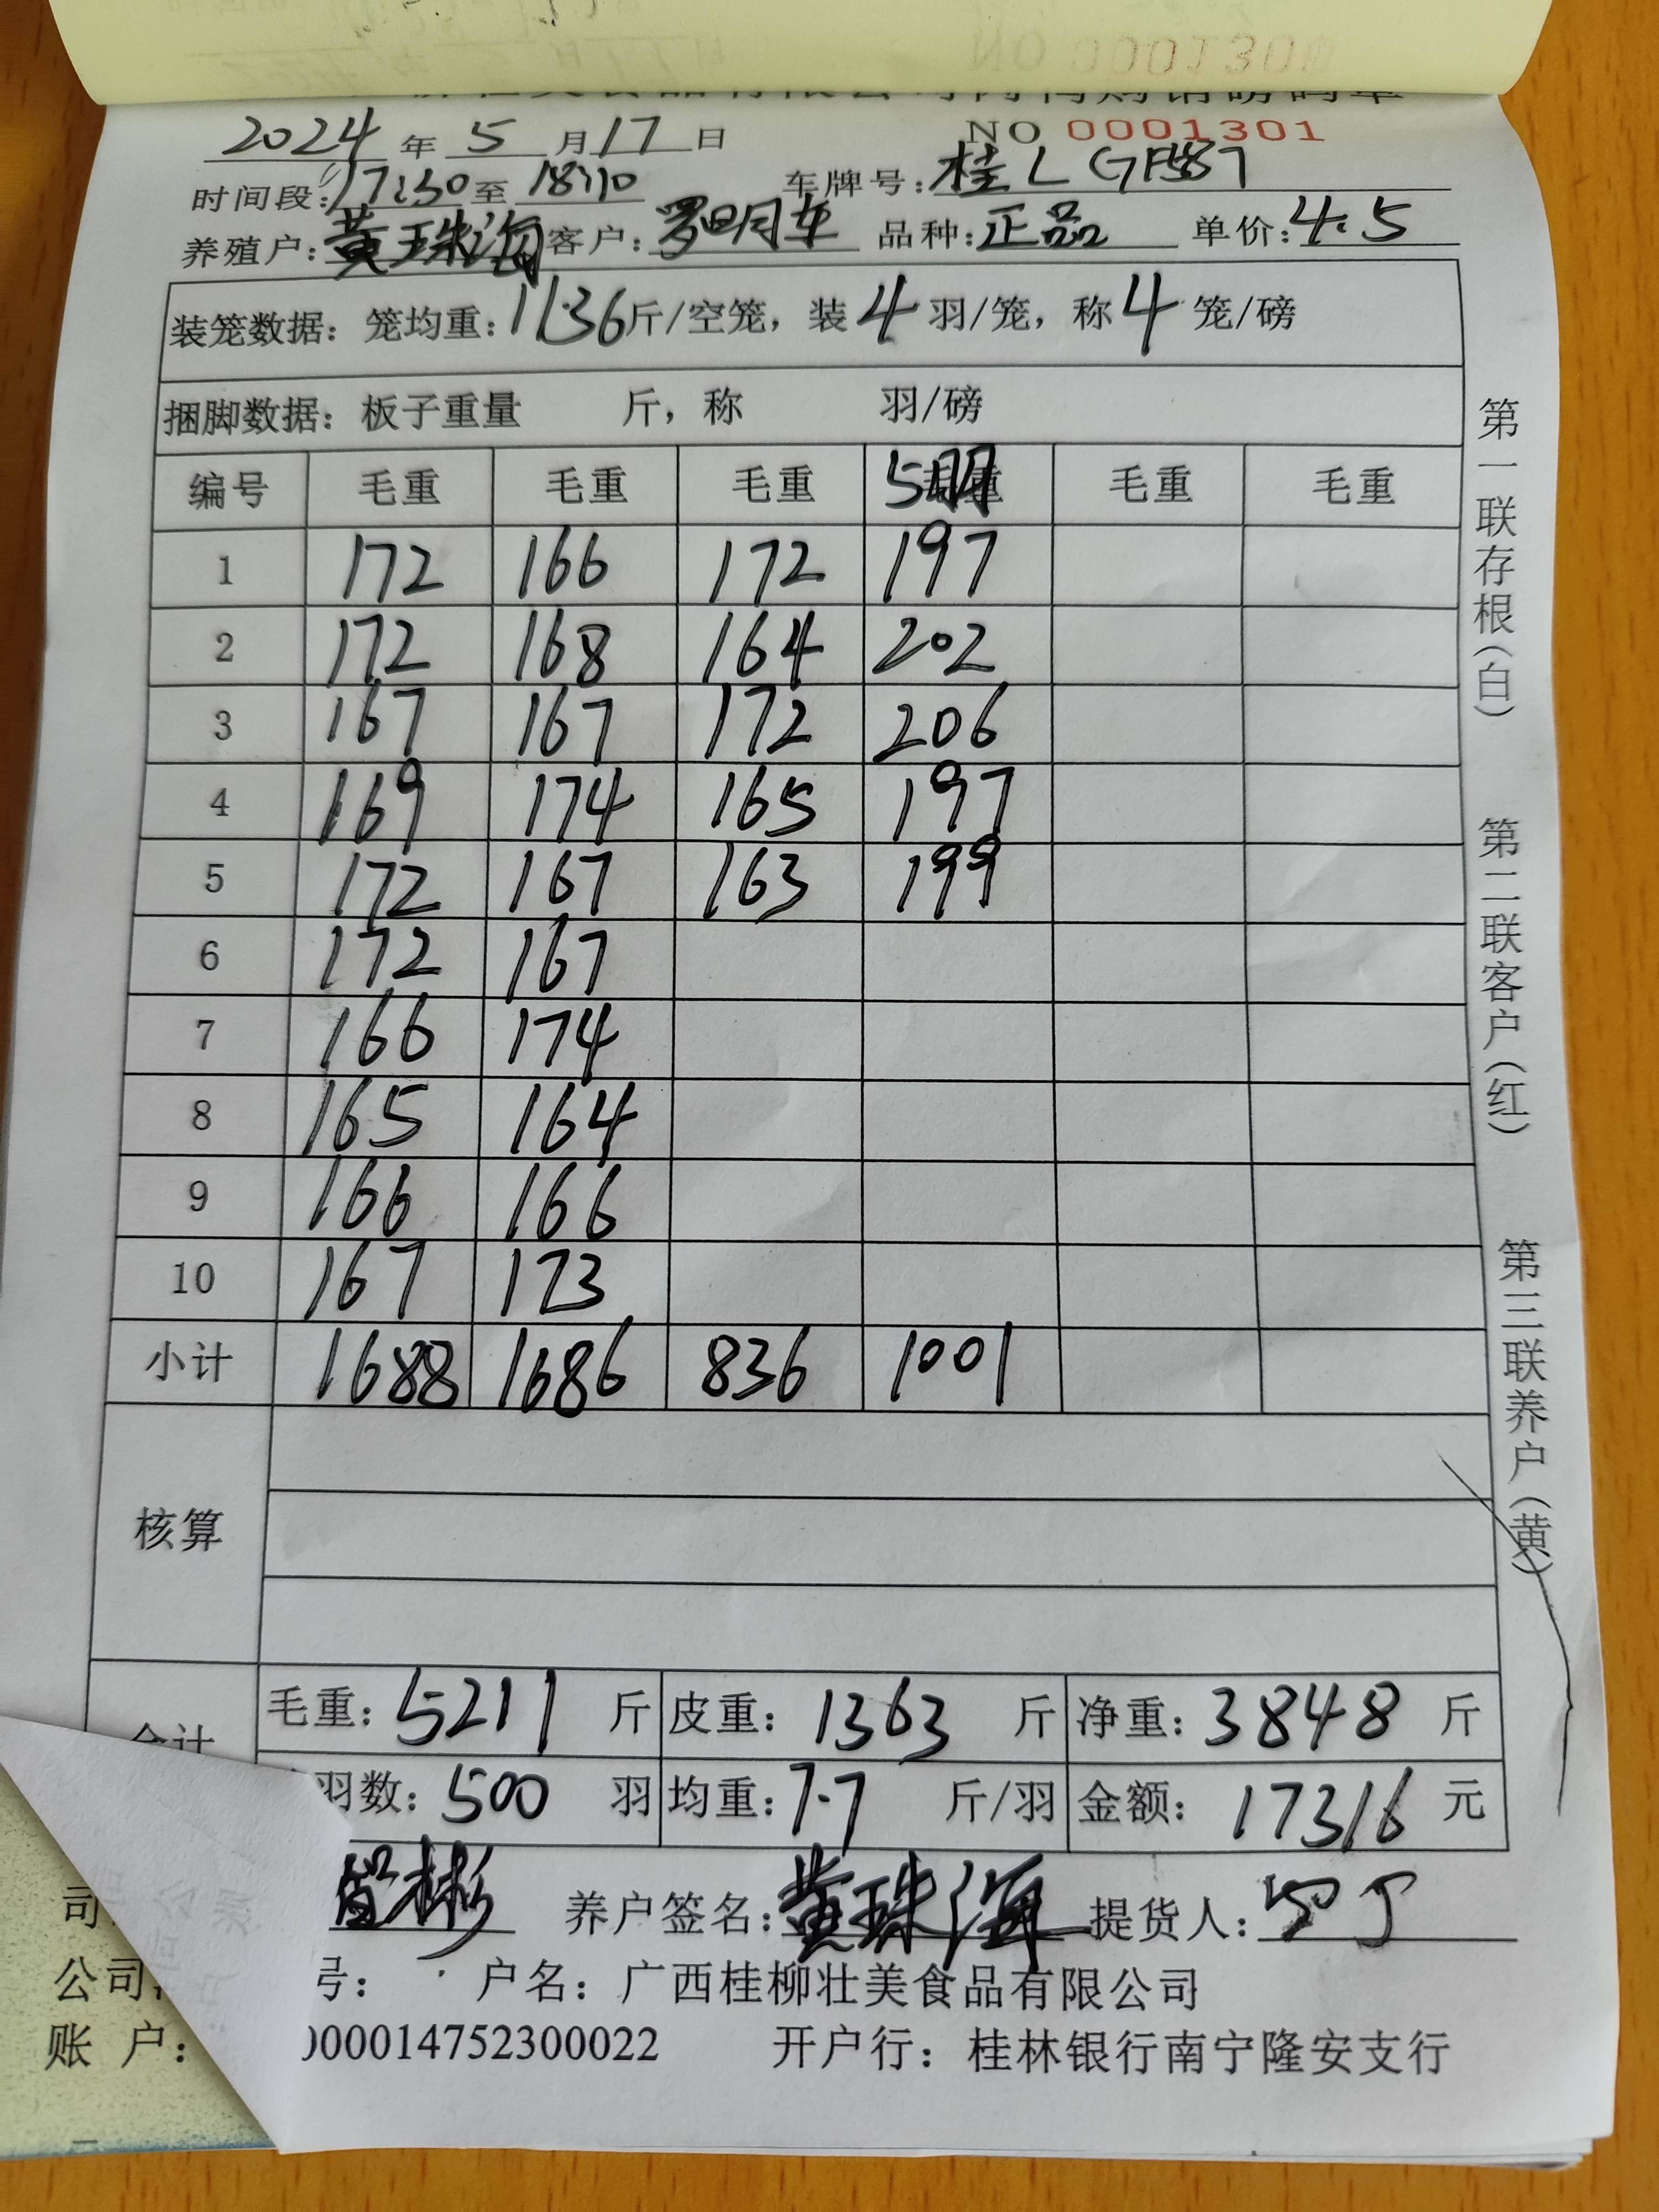 2024 年 5 月 17 日 NO 0001301
时间段: 17:30 至 18:10 车牌号: 桂L GF587
养殖户: 黄珠海 客户: 罗明车 品种: 正品 单价: 4.5
装笼数据: 笼均重: 11.36 斤/空笼, 装 4 羽/笼, 称 4 笼/磅
捆脚数据: 板子重量 斤, 称 羽/磅
编号 毛重 毛重 毛重 5羽 毛重 毛重
1 172 166 172 197
2 172 168 164 202
3 167 167 172 206
4 169 174 165 197
5 172 167 163 199
6 172 167
7 166 174
8 165 164
9 166 166
10 167 173
小计 1688 1686 836 1001
核算
合计 毛重: 5211 斤 皮重: 1363 斤 净重: 3848 斤
羽数: 500 羽 均重: 7.7 斤/羽 金额: 17316 元
司 彬 养户签名: 黄珠海 提货人:
公司 号: 户名: 广西桂柳壮美食品有限公司
账 户: 000014752300022 开户行: 桂林银行南宁隆安支行
第一联存根(白)
第二联客户(红)
第三联养户(黄)